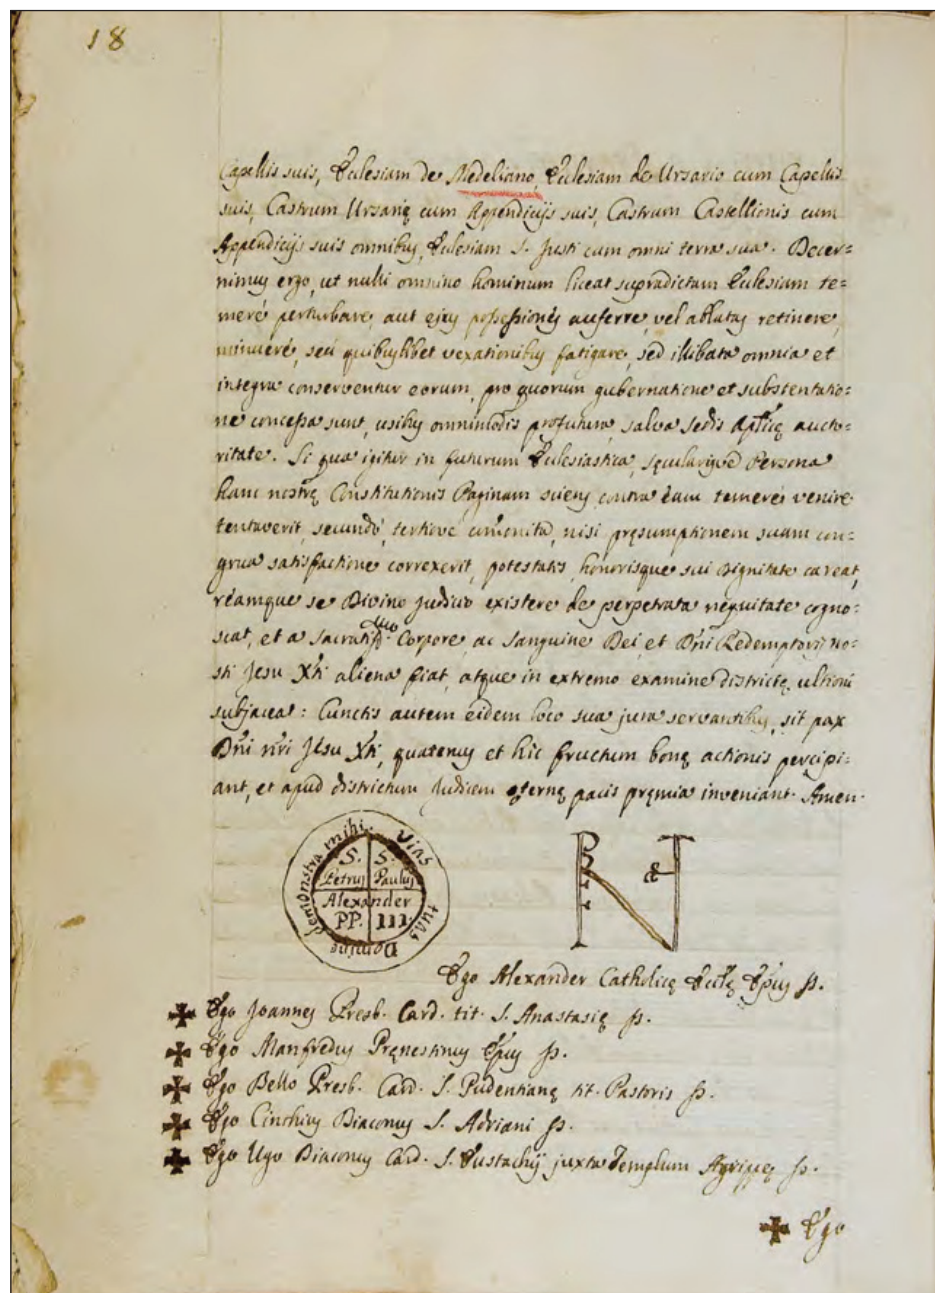 18
Capellis suis, Ecclesiam de Medeliano, Ecclesiam de Ursario cum Capellis
suis, Castrum Ursarię cum Appendicijs suis, Castrum Castellionis cum
Appendicijs suis omnibus, Ecclesiam S. Justi cum omni terra sua. Decer=
nimus ergo, ut nulli omnino hominum liceat supradictam Ecclesiam te=
meré perturbare, aut ejus possessiones auferre, vel ablatas retinere,
minueré, seú quibuslibet vexationibus fatigare, sed illibata omnia et
integra conserventur eorum, pro quorum gubernatione et substentatio=
ne concessa sunt, usibus omnimodis profutura, salva Sedis Apłicę aucto=
ritate. Si qua igitur in futurum Ecclesiastica, sęcularisvé Persona
hanc nostrę Constitutionis Paginam sciens contra éam temeré venire
tentaverit, secundó, tertiové com̃onita, nisi pręsumptionem suam con=
grua satisfactione correxerit, potestatis, honorisque sui Dignitate careat,
réamque se Divino Judicio existere de perpetrata néquitate cogno=
scat, et a sacratiss.mo Corpore, ac Sanguine Dei, et Dñi Redemptoris no=
sti Jesu Xti aliena fiat, atque in extremo examine districtę ultioni
subjaceat: Cunctis autem eidem loco sua jura servantibus, sit pax
Dñi nři Jesu Xti, quatenus et hic fructum bonę actionis percipi=
ant, et apud districtum Judicem ęternę pacis pręmia inveniant. Amen.
Vias tuas Domine demonstra mihi.
S. Petrus S. Paulus
Alexander
PP. III.
Ego Alexander Catholicę Ecclę Epus ss.
Ego Joannes Presb. Card. tit. S. Anastasię ss.
Ego Manfredus Pręnestinus Epus ss.
Ego Bello Presb. Card. S. Pudentianę tit. Pastoris ss.
Ego Cinthius Diaconus S. Adriani ss.
Ego Ugo Diaconus Card. S. Eustachij juxta Templum Agrippę ss.
Ego